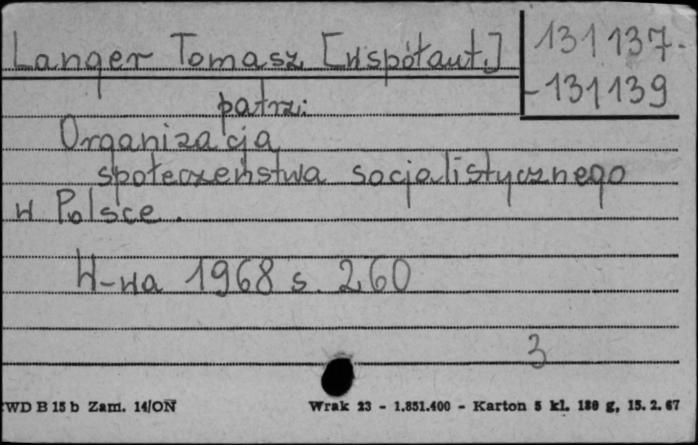 Langer Tomasz [współaut.]
131137-
-131139
patrz:
Organizacja
społeczeństwa socjalistycznego
w Polsce.
W-wa 1968 s. 260
3
WD B 15 b Zam. 14/ON
Wrak 23 - 1.851.400 - Karton 5 kl. 180 g, 15. 2. 67